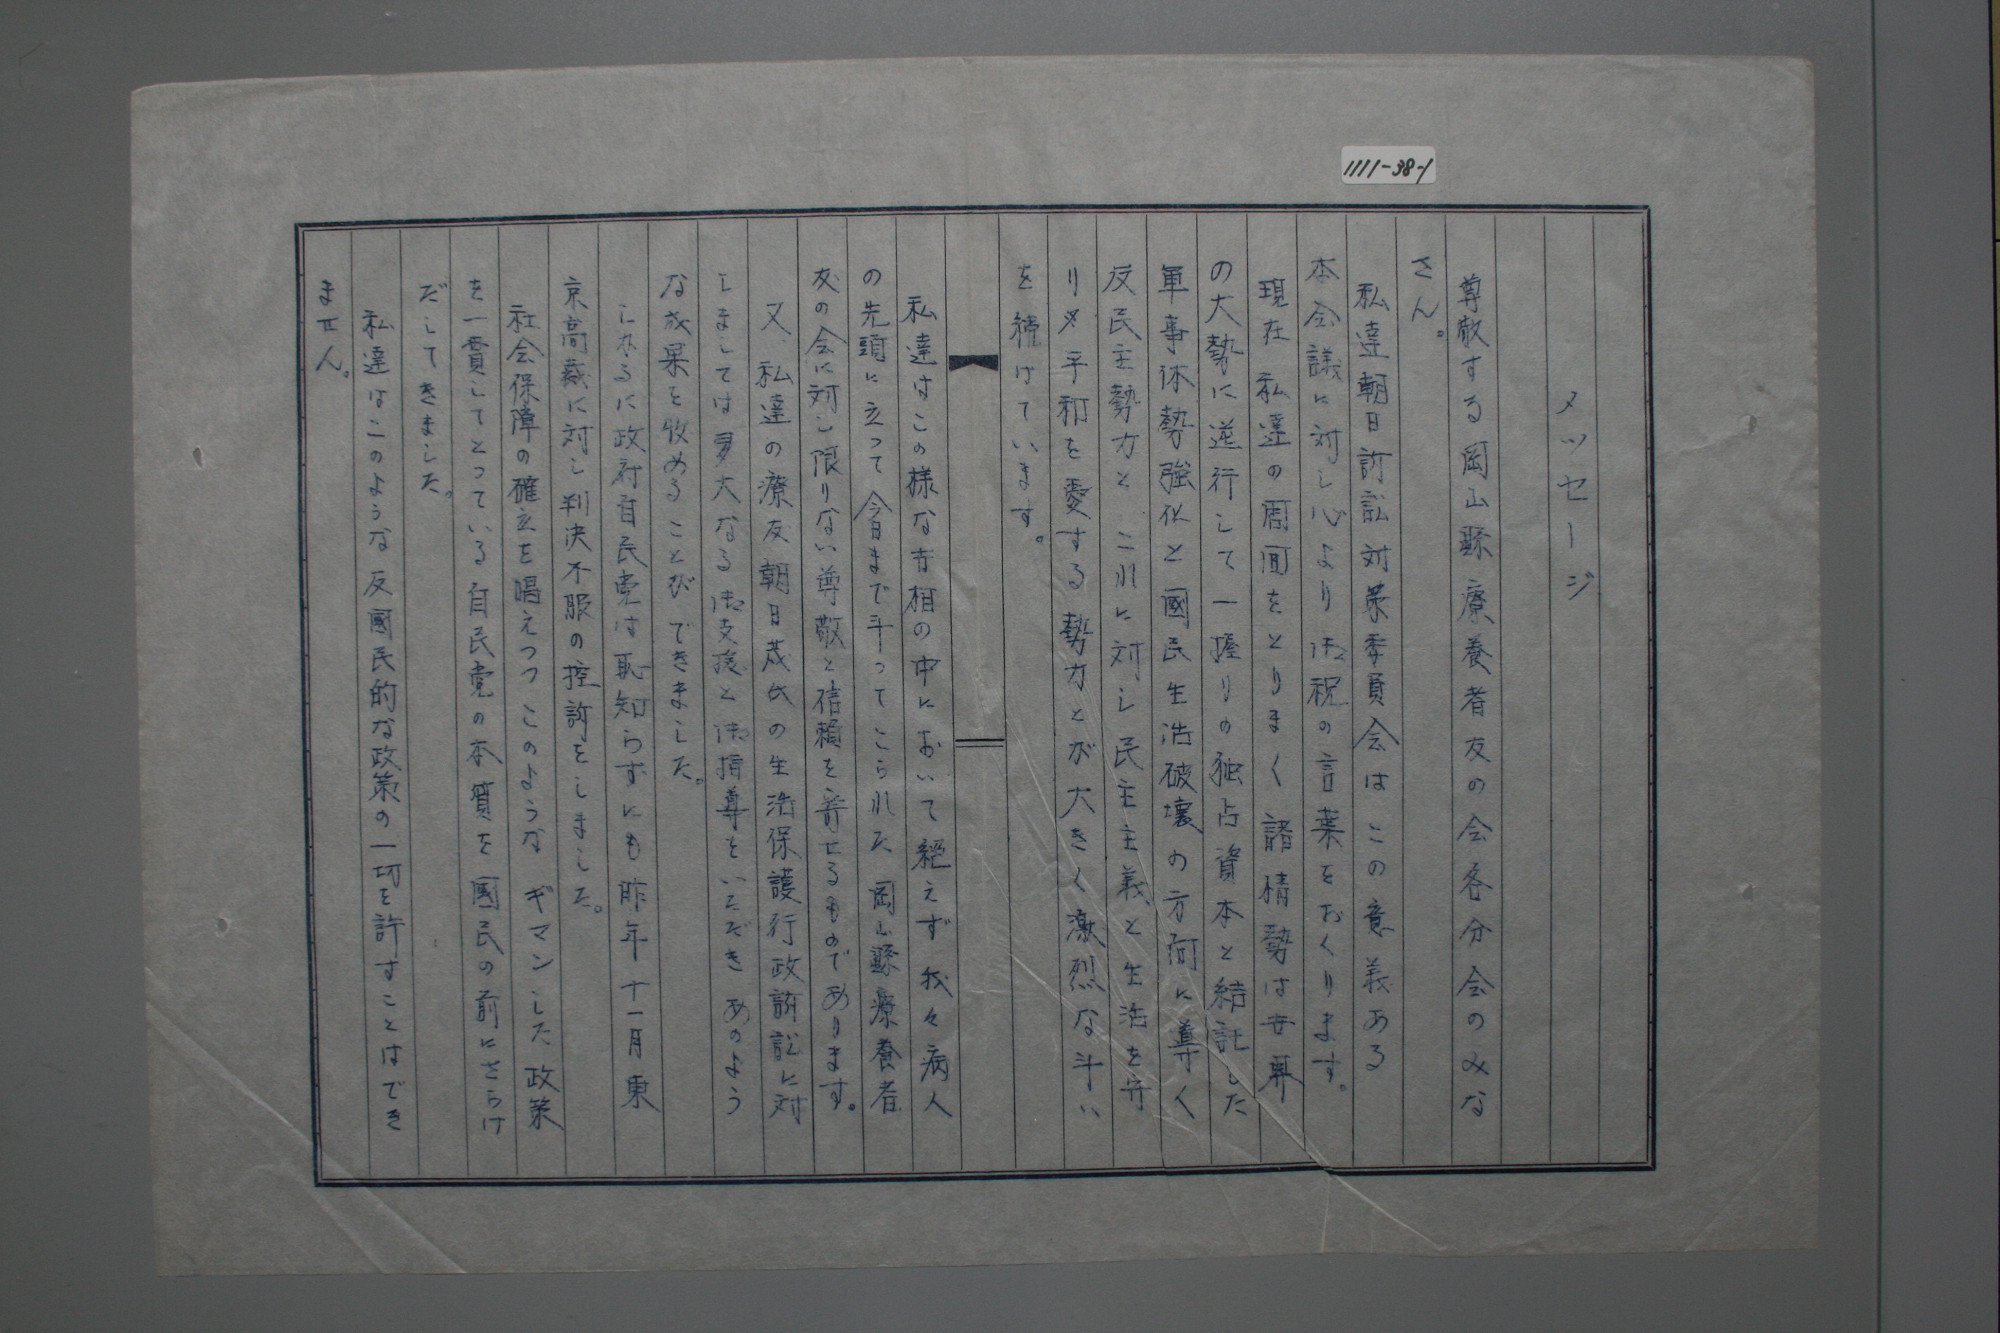 1111-38-1
メッセージ
尊敬する岡山縣療養者友の会各分会のみな
さん。
私達朝日訴訟対策委員会はこの意義ある
本会議に対し心より御祝の言葉をおくります。
現在 私達の周囲をとりまく 諸情勢は世界
の大勢に逆行して一握りの独占資本と結託した
軍事体勢強化と國民生活破壊の方向に導く
反民主勢力と これに対し民主主義と生活を守
り 平和を愛する勢力とが大きく激烈な斗い
を続けています。
私達はこの様な世相の中において絶えず我々病人
の先頭に立って今日まで斗ってこられた岡山縣療養者
友の会に対し限りない尊敬と信頼を寄せるものであります。
又、私達の療友朝日茂氏の生活保護行政訴訟に対
しましては多大なる御支援と御指導をいただきあのよう
な成果を收めることができました。
しかるに政府自民党は恥知らずにも昨年十一月東
京高裁に対し判決不服の控訴をしました。
社会保障の確立を唱えつつこのような ギマンした政策
を一貫してとっている自民党の本質を國民の前にさらけ
だしてきました。
私達はこのような反國民的な政策の一切を許すことはでき
ません。